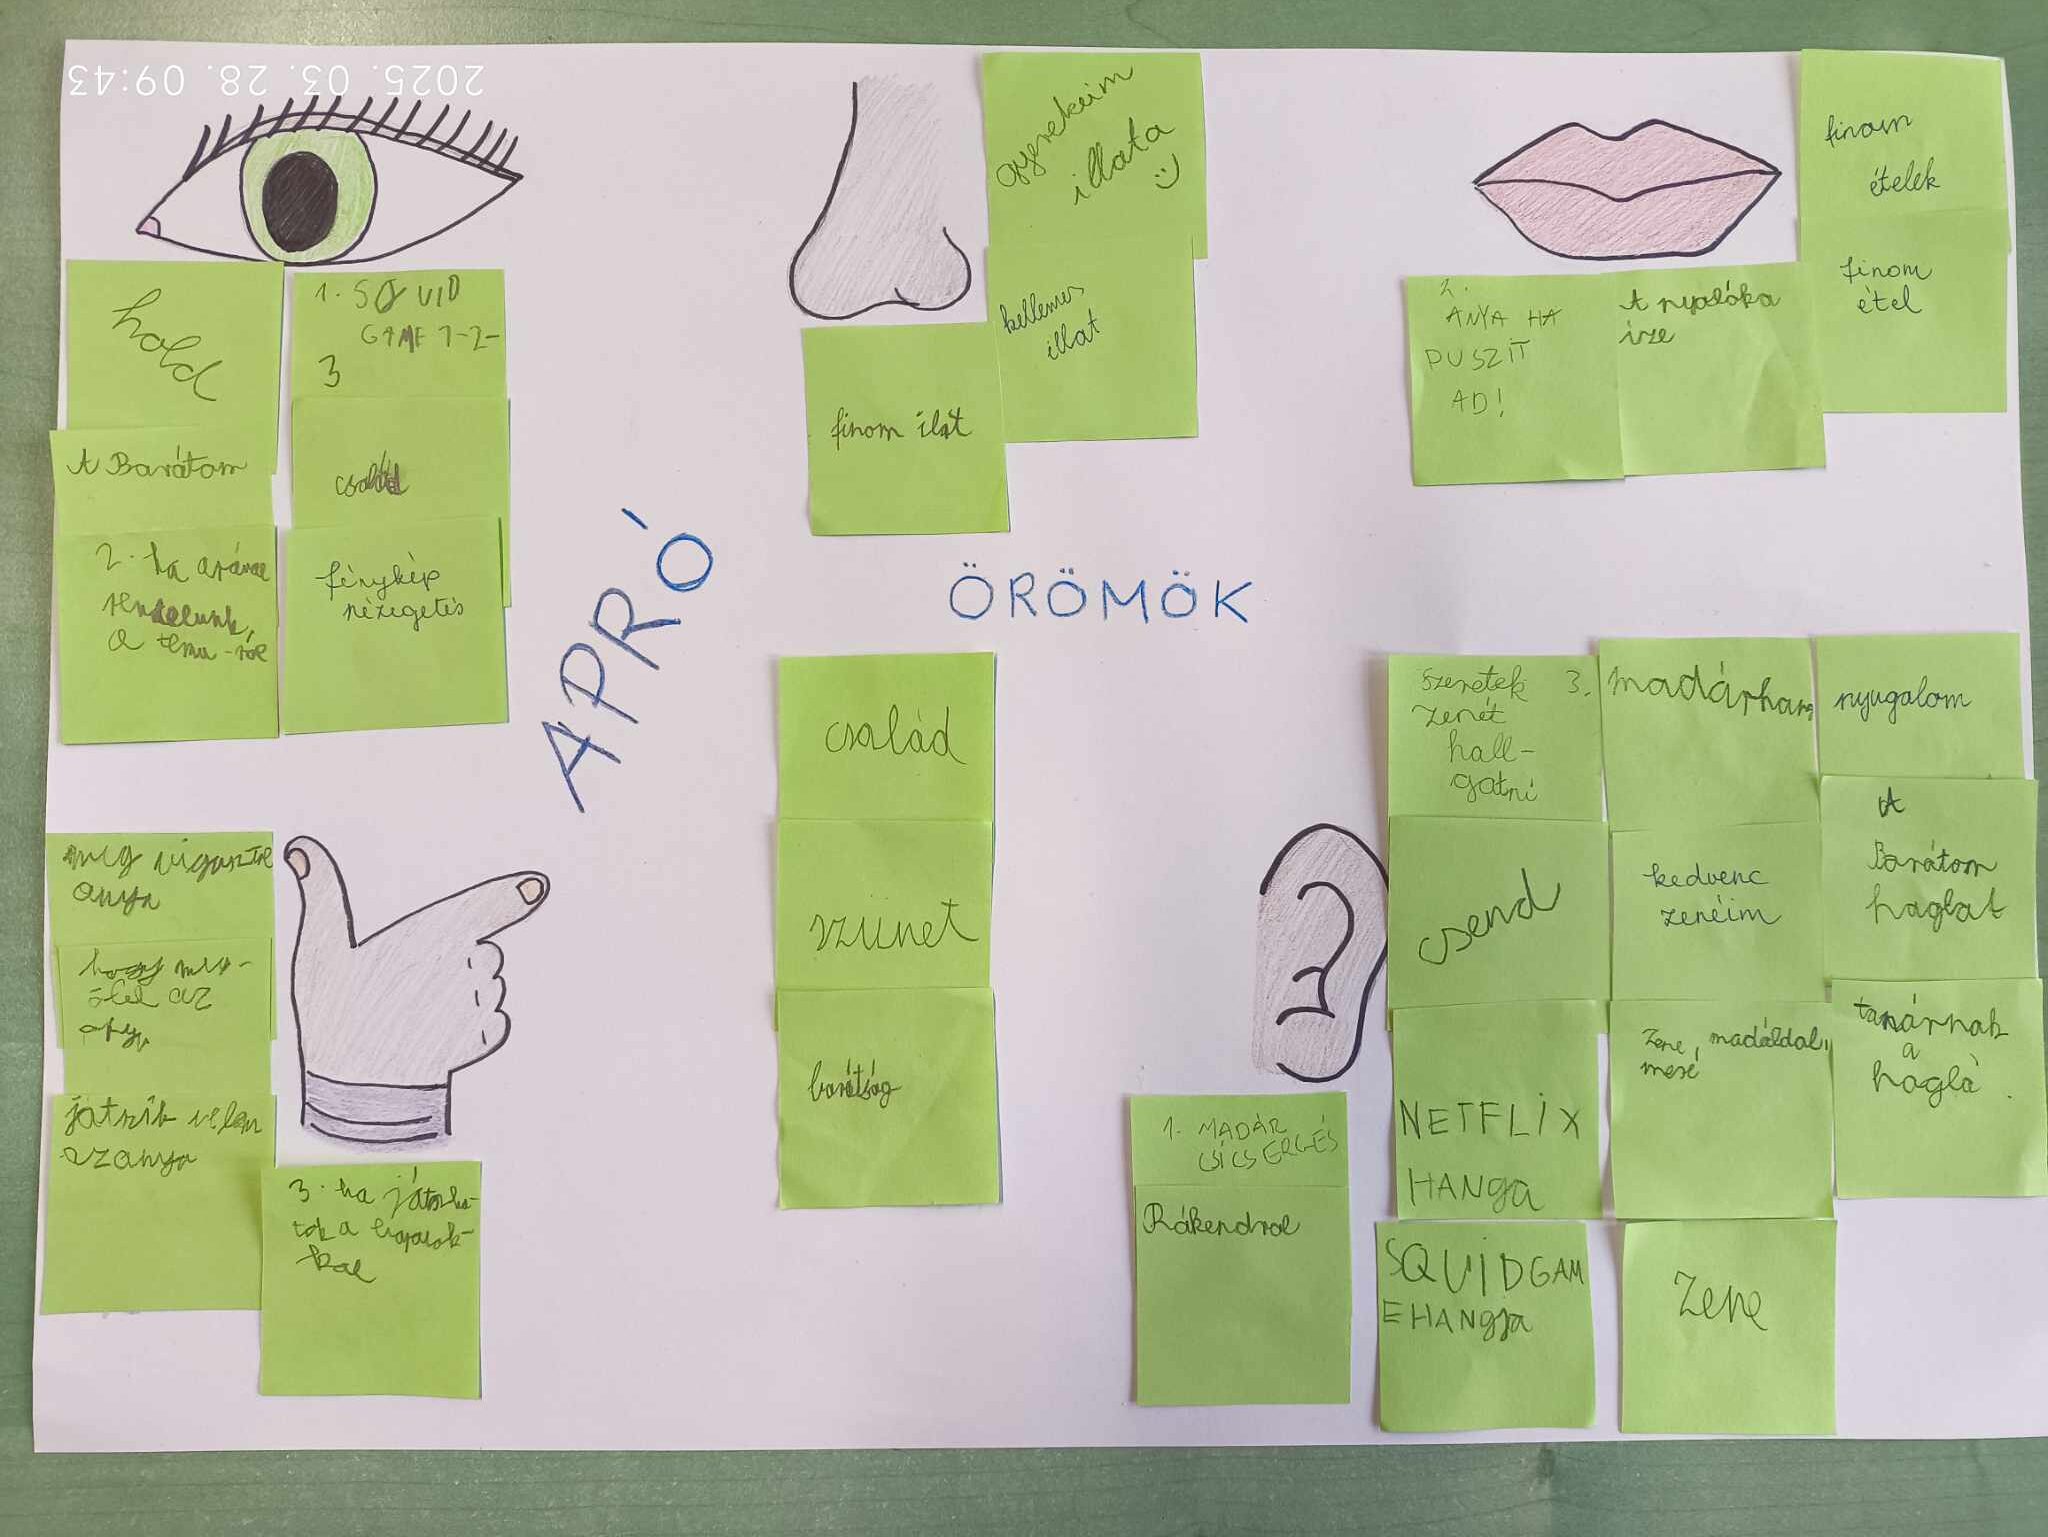 2025. 03. 28. 09:43
hold
1. SQUID
GAME 1-2-
3
A Barátom
család
2. ha
a temu-ról
fénykép
nézegetés
gyerekeim
illata
kellemes
illat
finom ilat
finom
ételek
finom
étel
2.
ANYA HA
PUSZIT
AD!
A nyalóka
íze
APRÓ
ÖRÖMÖK
család
szünet
barátság
meg
anya
hogy
az
játszik velem
azanya
3. ha
a
szeretek 3.
zenét
hall-
gatni
madárhang
nyugalom
csend
kedvenc
zenéim
A
Barátom
haglat
NETFLIX
HANGA
Zene, madáldal,
mesé
tanárnak
a
haglá
1. MADÁR
CSICSERGÉS
Rákendrol
SQUIDGAM
EHANGJA
Zene